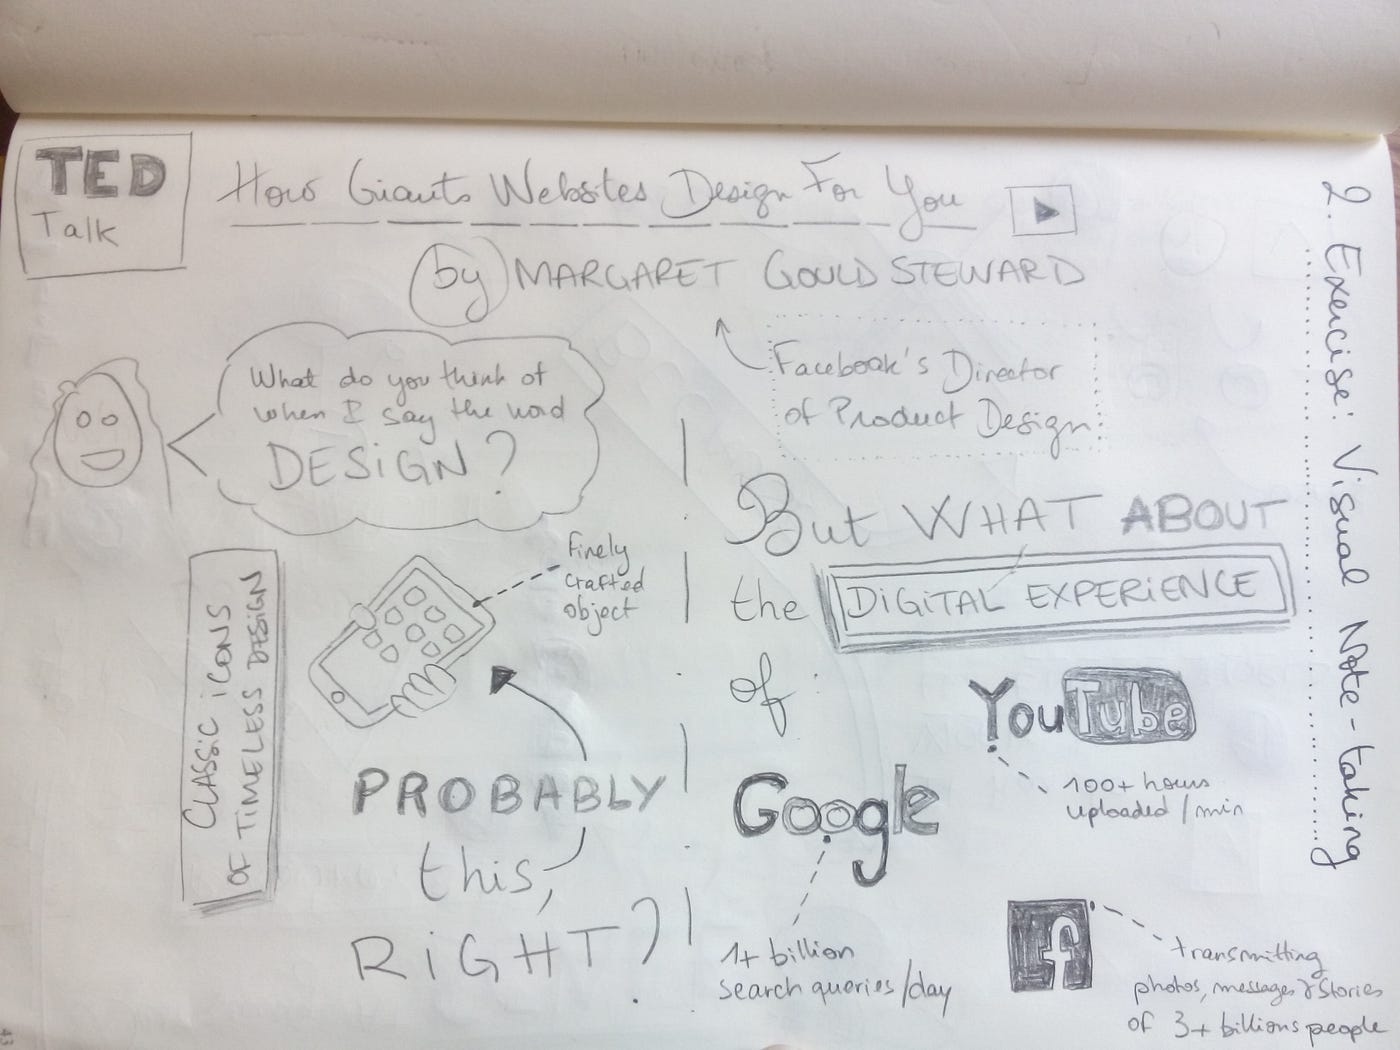 TED
Talk
How Giants Websites Design For You
by MARGARET GOULD STEWARD
Facebook's Director
of Product Design
2. Exercise: Visual Note-taking
What do you think of
when I say the word
DESiGN?
CLASSiC iCONS
OF TiMELESS DESiGN
Finely
crafted
object
PROBABLY
this,
RiGHT?
But WHAT ABOUT
the DiGiTAL EXPERiENCE
of
YouTube
100+ hours
uploaded/min
Google
1+ billion
search queries/day
f
transmitting
photos, messages & Stories
of 3+ billions people
43